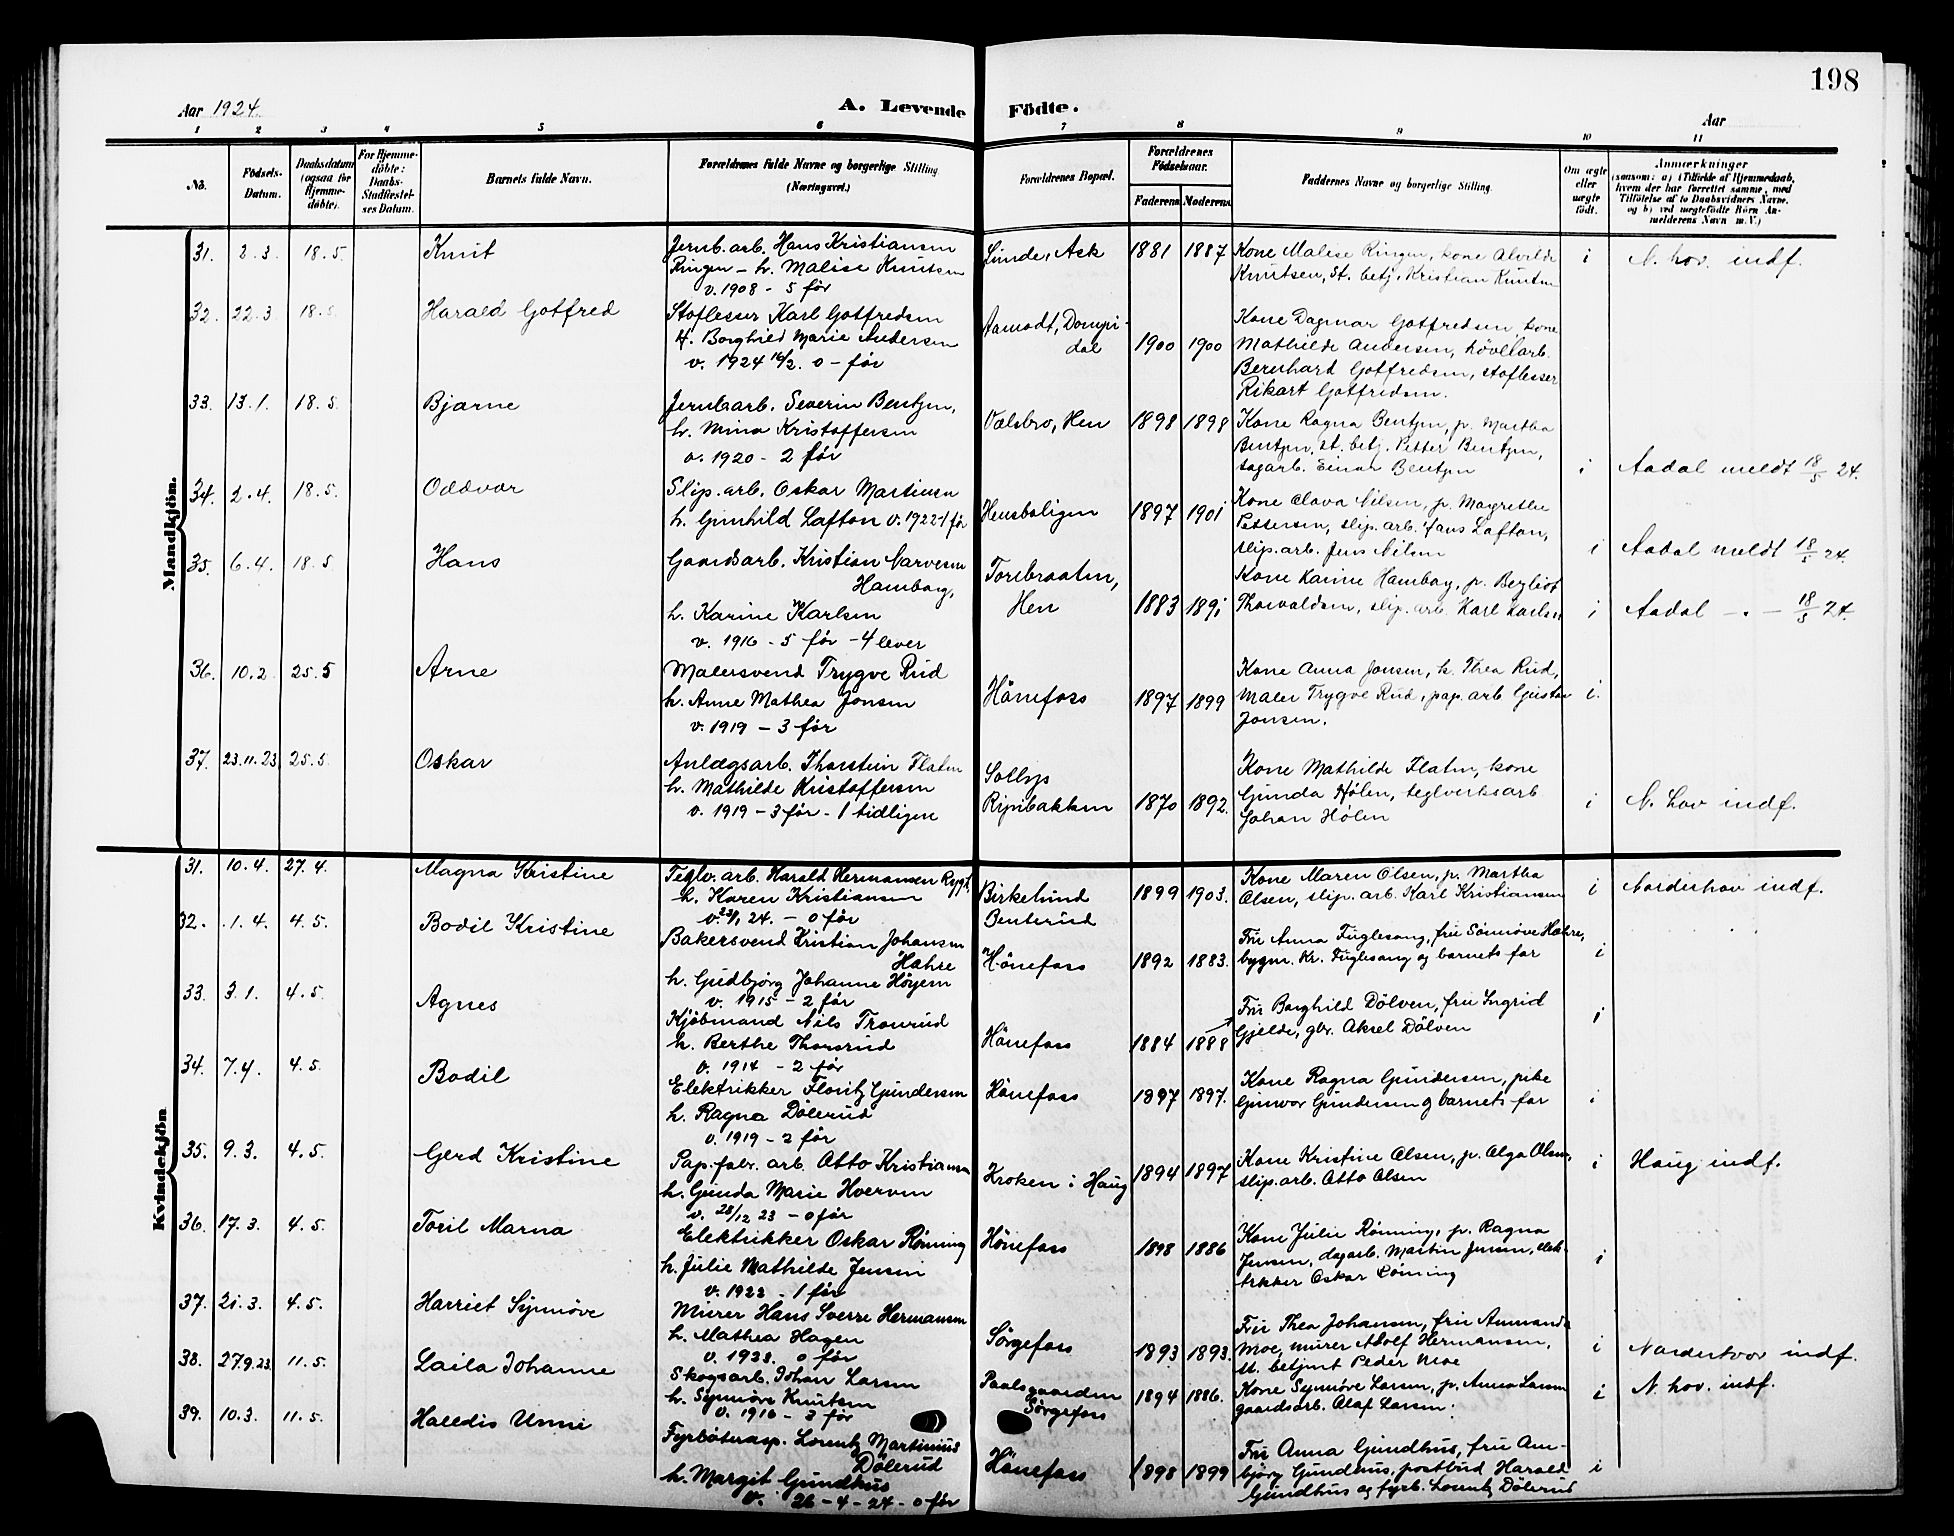 198
Aar 1924.
A. Levende Födte.
Aar
1 2 3 4 5 6 7 8 9 10 11
No.
Födsels-
Datum.
Daabsdatum
(ogsaa for
Hjemme-
døbte).
For Hjemme-
døbte:
Daabs-
Stadfæstel-
ses Datum.
Barnets fulde Navn.
Forældrenes fulde Navne og borgerlige Stilling
(Næringsvei.)
Forældrenes Bopæl.
Forældrenes
Födselsaar.
Faderens Moderens
Faddernes Navne og borgerlige Stilling.
Om ægte
eller
uægte
født.
Anmærkninger
(saasom: a) i Tilfælde af Hjemmedaab,
hvem der har forrettet samme, med
Tilføielse af to Daabsvidners Navne,
og b) ved uægtefødte Börn An-
melderens Navn m. V.)
Mandkjön.
31. 2.3. 18.5. Knut
Jernb. arb. Hans Kristiansen
Ringen - h. Malise Knutsen
v. 1908 - 5 før
Lunde, Ask 1881 1887
Kone Malise Ringen, kone Alvilde
Knutsen, st. betj. Kristian Knutsen
i N. hov. indf.
32. 22.3 18.5 Harald Gotfred
Stoflesser Karl Gotfredsen
H. Borghild Marie Andersen
v. 1924 16/2. 0 - før
Aamodt, 1900 1900
Kone Dagmar Gotfredsen, kone
Mathilde Andersen, hövlarb.
Bernhart Gotfredsen, stoflesser
Rikart Gotfredsen.
33. 13.1. 18.5. Bjarne
Jernbarb. Severin Bentzen,
h. Mina Kristoffersen
v. 1920 - 2 før
Valsbro, Hen 1898 1898
Kone Ragna Bentzen, p. Martha
Bentzen, st. betj. Petter Bentzen,
sagarb. Einar Bentzen
i Aadal meldt 18/5 24.
34. 2.4. 18.5. Oddvar
Slip. arb. Oskar Martinsen
h. Gunhild Lafton v. 1922-1 før
Hensboligen 1897 1901
Kone Olava Nilsen, p. Magrethe
Pettersen, slip. arb. Hans Lafton,
slip. arb. Jens Nilsen
i Aadal meldt 18/5 24.
35. 6.4. 18.5 Hans
Gaardsarb. Kristian Narvesen
Hamborg,
h. Karine Karlsen
v. 1916 - 5 før - 4 lever
Torebraaten,
Hen 1883 1891
Kone Karine Hamborg, p. Bergliot
Thorvaldsen, slip. arb. Karl Karlsen
i Aadal - " - 18/5 24.
36. 10.2 25.5 Arne
Malersvend Trygve Rud
h. Anne Mathea Jonsen
v. 1919 - 3 før
Hönefoss 1897 1899
Kone Anna Jonsen, k. Thea Rud,
Maler Trygve Rud, pap. arb Gustav
Jonsen.
i.
37. 23.11.23 25.5 Oskar
Anlægsarb. Thorstein Flaten
h. Mathilde Kristoffersen
v. 1919 - 3 før - 1 tidligere
Solbys
Ripibakken 1870 1892.
Kone Mathilde Flaten, kone
Gunda Hølen, teglverksarb
Johan Hölen
i N. hov indf.
Kvindekjön
31. 10.4. 27.4. Magna Kristine
Teglv. arb. Harald Hermansen
h. Karen Kristiansen
v. 24. - 0 før
Birkelund
Benterud 1899 1903.
Kone Maren Olsen, p. Martha
Olsen, slip. arb. Karl Kristiansen
i Norderhov indf.
32. 1.4. 4.5. Bodil Kristine
Bakersvend Kristian Johansen
Hæhre
h. Gudbjörg Johanne Höyem
v. 1915 - 2 før
Hönefoss 1892 1883.
Fru Anna Fuglesang, fru Sönnöve Hæhre,
bygm. Kr. Fuglesang og barnets far
i
33. 3.1. 4.5. Agnes
Kjöbmand Nils Tronrud
h. Berthe Thorsrud
v. 1914 - 2 før
Hönefoss 1884 1888
Fru Borghild Dölven, fru Ingrid
Gjelde, gbr. Aksel Dölven
i
34. 7.4. 4.5. Bodil
Elektrikker Floritz Gundersen
h. Ragna Dölerud
v. 1919 - 2 før
Hönefoss 1897 1897.
Kone Ragna Gundersen, pike
Gunvor Gundersen og barnets far
i
35. 9.3. 4.5. Gerd Kristine
Pap. fabr. arb. Otto Kristiansen
h. Gunda Marie Hverven
v. 28/12 23 - 0 før
Kroken i Haug 1894 1897
Kone Kristine Olsen, p. Olga Olsen,
slip. arb. Otto Olsen
i Haug indf.
36. 17.3. 4.5. Toril Marna
Elektrikker Oskar Rønning
h. Julie Mathilde Jensen
v. 1922 - 1 før
Hönefoss 1898 1886
Kone Julie Rønning, p. Ragna
Jensen, dagarb. Martin Jensen, elek-
trikker Oskar Rönning
i
37. 21.3. 4.5. Harriet Synnöve
Murer Hans Sverre Hermansen
h. Mathea Hagen
v. 1923. 0 før
Sørgefoss 1893 1893.
Fru Thea Johansen, fru Annanda
Moe, murer Adolf Hermansen,
st. betjent Peder Moe
i Norderhov indf.
38. 27.9.23. 11.5. Laila Johanne
Skogsarb. Johan Larsen
h. Synnöve Knutsen
v. 1916 - 3 før
Paalsgaarden
Sørgefoss 1894 1886.
Kone Synnöve Larsen, p. Anna Larsen
gaardsarb. Olaf Larsen.
i N. hov. indf.
39. 10.3. 11.5. Halldis Unni
Fyrbøterasp. Lorentz Martinius
Dölerud
h. Margit Gundhus
v. 26-4-24-0 før
Hönefoss 1898 1899
Fru Anna Gundhus, fru An-
björg Gundhus, postbud Harald
Gundhus og fyrb. Lorentz Dölerud
i